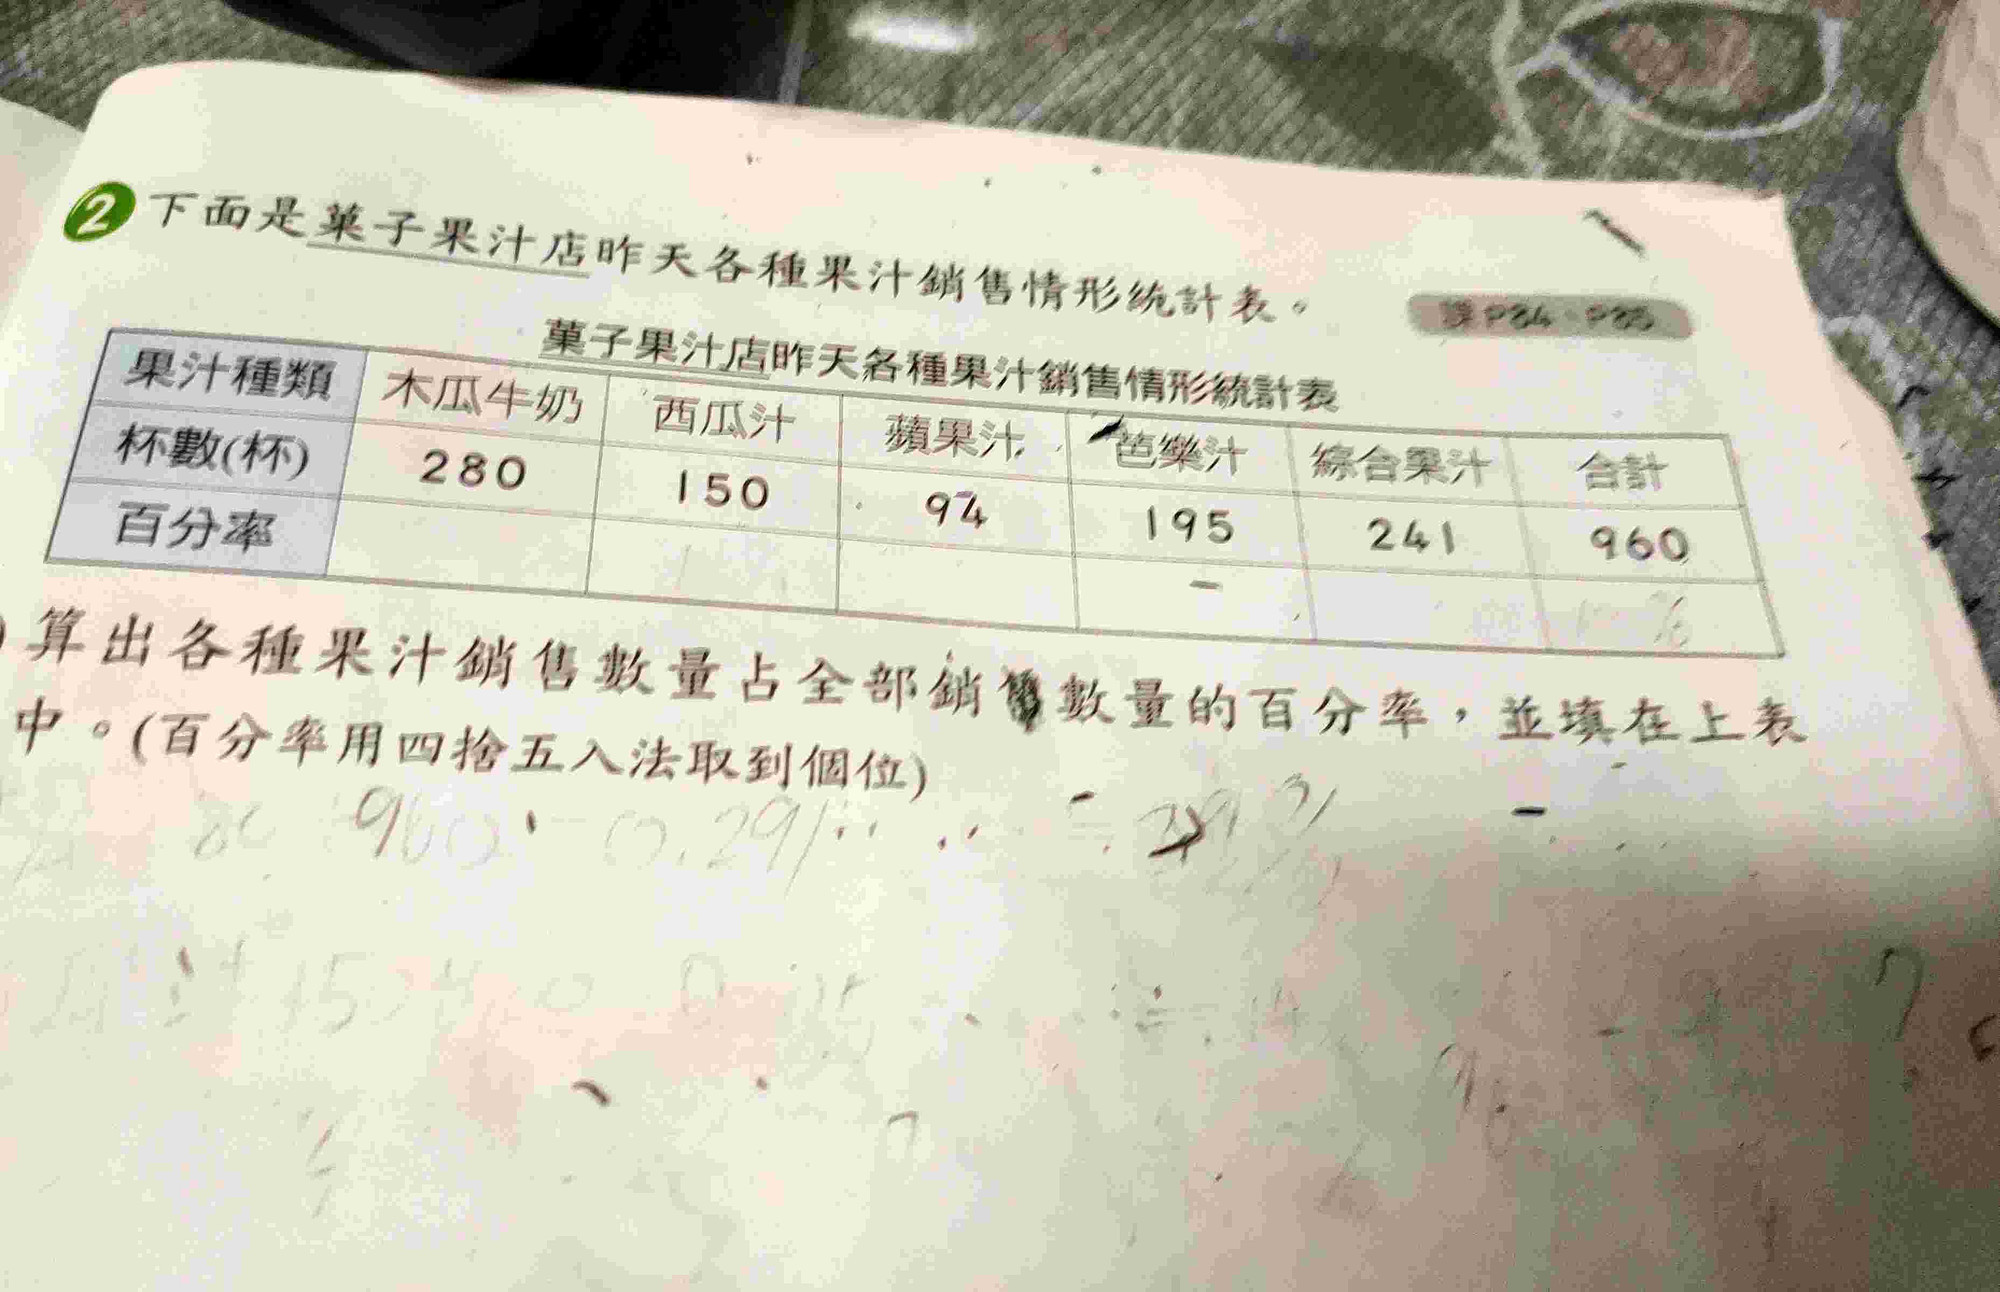 2 下面是菓子果汁店昨天各種果汁銷售情形統計表。
課P84、P85
菓子果汁店昨天各種果汁銷售情形統計表
果汁種類 木瓜牛奶 西瓜汁 蘋果汁 芭樂汁 綜合果汁 合計
杯數(杯) 280 150 94 195 241 960
百分率
) 算出各種果汁銷售數量占全部銷售數量的百分率，並填在上表
中。(百分率用四捨五入法取到個位)
960 0.291